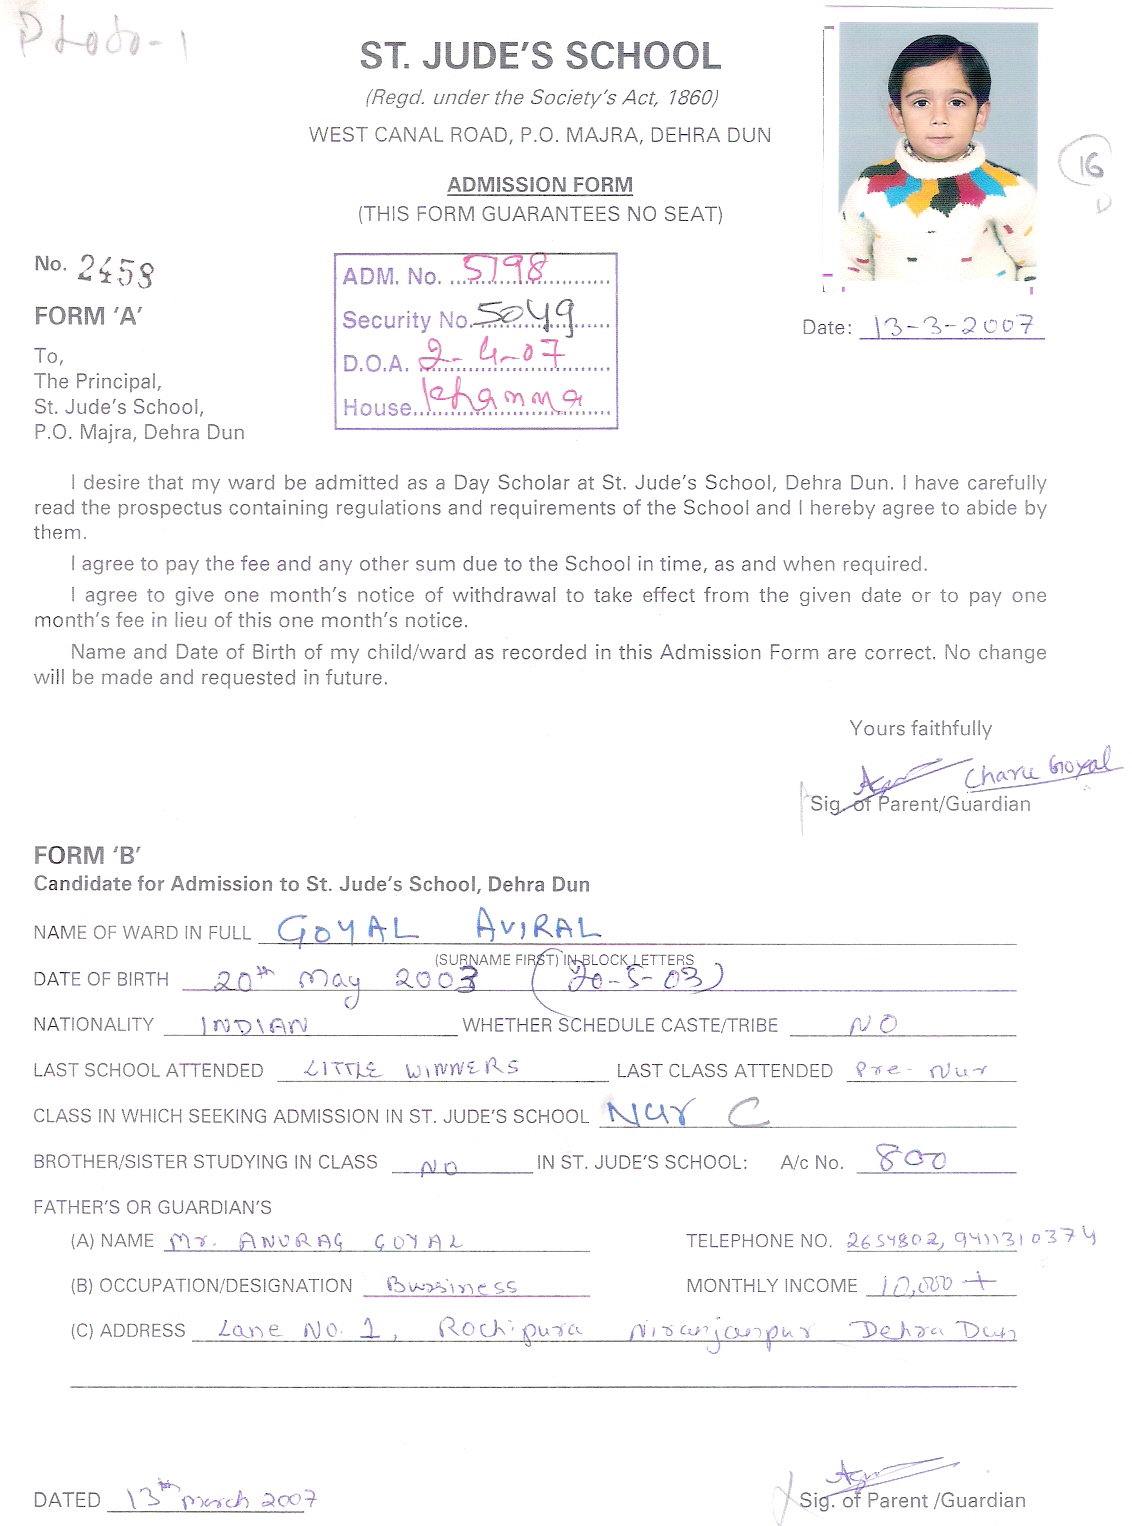 Photo-1
ST. JUDE'S SCHOOL
(Regd. under the Society's Act, 1860)
WEST CANAL ROAD, P.O. MAJRA, DEHRA DUN
16
ADMISSION FORM
(THIS FORM GUARANTEES NO SEAT)
No. 2458
ADM. No. 5198
Security No. 5049
D.O.A. 2-4-07
House Khanna
FORM 'A'
Date: 13-3-2007
To,
The Principal,
St. Jude's School,
P.O. Majra, Dehra Dun
I desire that my ward be admitted as a Day Scholar at St. Jude's School, Dehra Dun. I have carefully
read the prospectus containing regulations and requirements of the School and I hereby agree to abide by
them.
I agree to pay the fee and any other sum due to the School in time, as and when required.
I agree to give one month's notice of withdrawal to take effect from the given date or to pay one
month's fee in lieu of this one month's notice.
Name and Date of Birth of my child/ward as recorded in this Admission Form are correct. No change
will be made and requested in future.
Yours faithfully
Charu Goyal
Sig. of Parent/Guardian
FORM 'B'
Candidate for Admission to St. Jude's School, Dehra Dun
NAME OF WARD IN FULL GOYAL AVIRAL
(SURNAME FIRST) IN BLOCK LETTERS
DATE OF BIRTH 20th May 2003 (20-5-03)
NATIONALITY INDIAN WHETHER SCHEDULE CASTE/TRIBE NO
LAST SCHOOL ATTENDED LITTLE WINNERS LAST CLASS ATTENDED Pre-Nur
CLASS IN WHICH SEEKING ADMISSION IN ST. JUDE'S SCHOOL Nur C
BROTHER/SISTER STUDYING IN CLASS NO IN ST. JUDE'S SCHOOL: A/c No. 800
FATHER'S OR GUARDIAN'S
(A) NAME Mr. ANURAG GOYAL TELEPHONE NO. 2654802, 9411310374
(B) OCCUPATION/DESIGNATION Bussiness MONTHLY INCOME 10,000 +
(C) ADDRESS Lane No. 1, Rochipura Niranjanpur Dehra Dun
DATED 13th March 2007
Sig. of Parent /Guardian